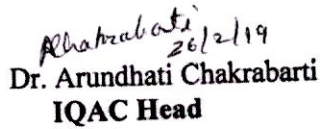 AChakrabarti
26/2/19
Dr. Arundhati Chakrabarti
IQAC Head